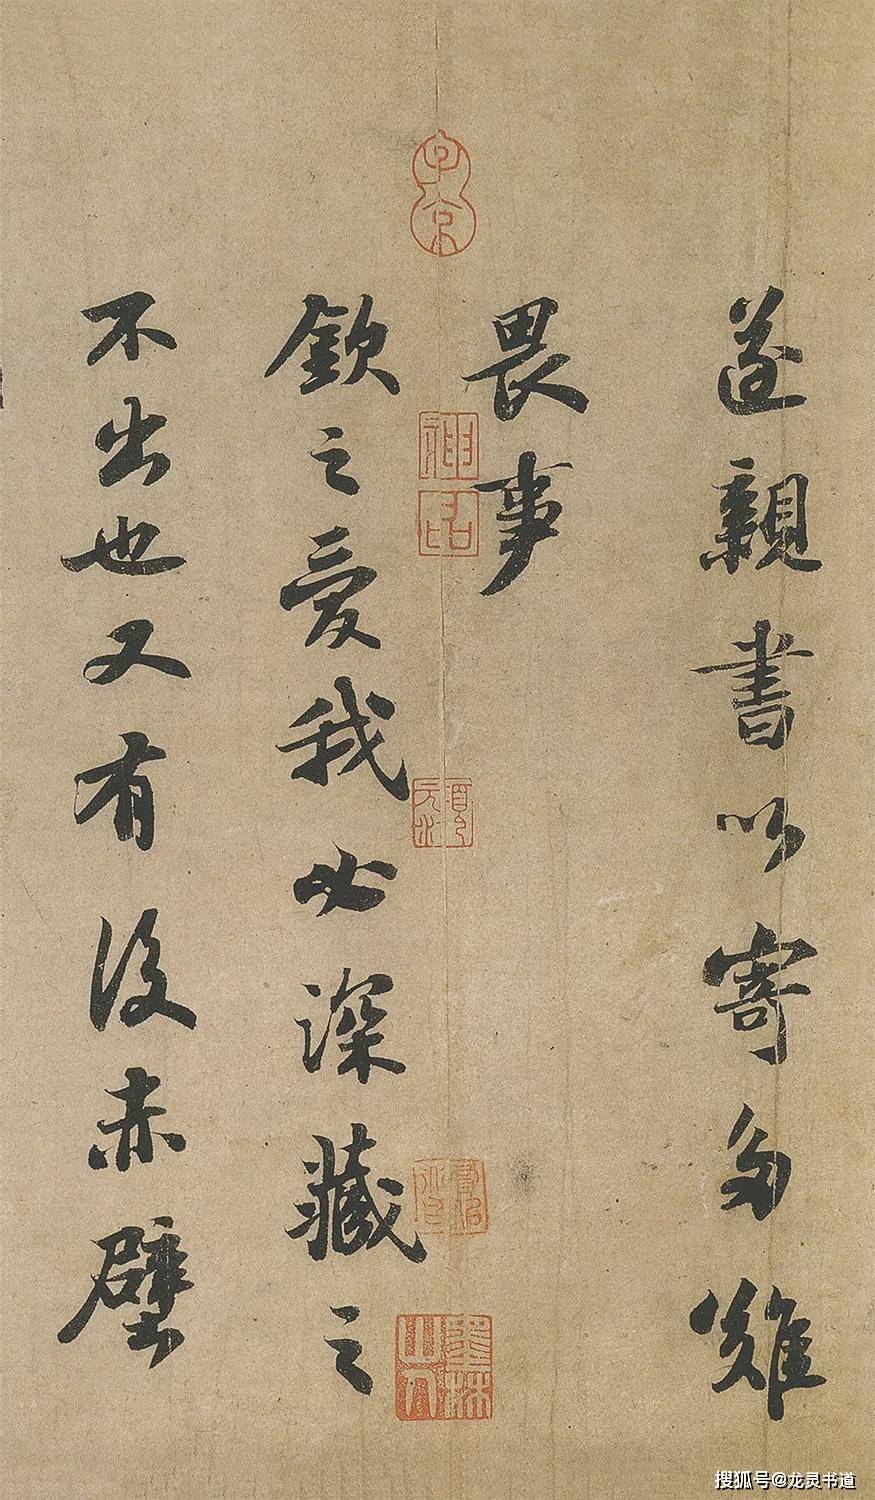 遂親書以寄多難
畏事
欽之愛我必深藏之
不出也又有後赤壁
子京
墨林山人
搜狐号@龙灵书道